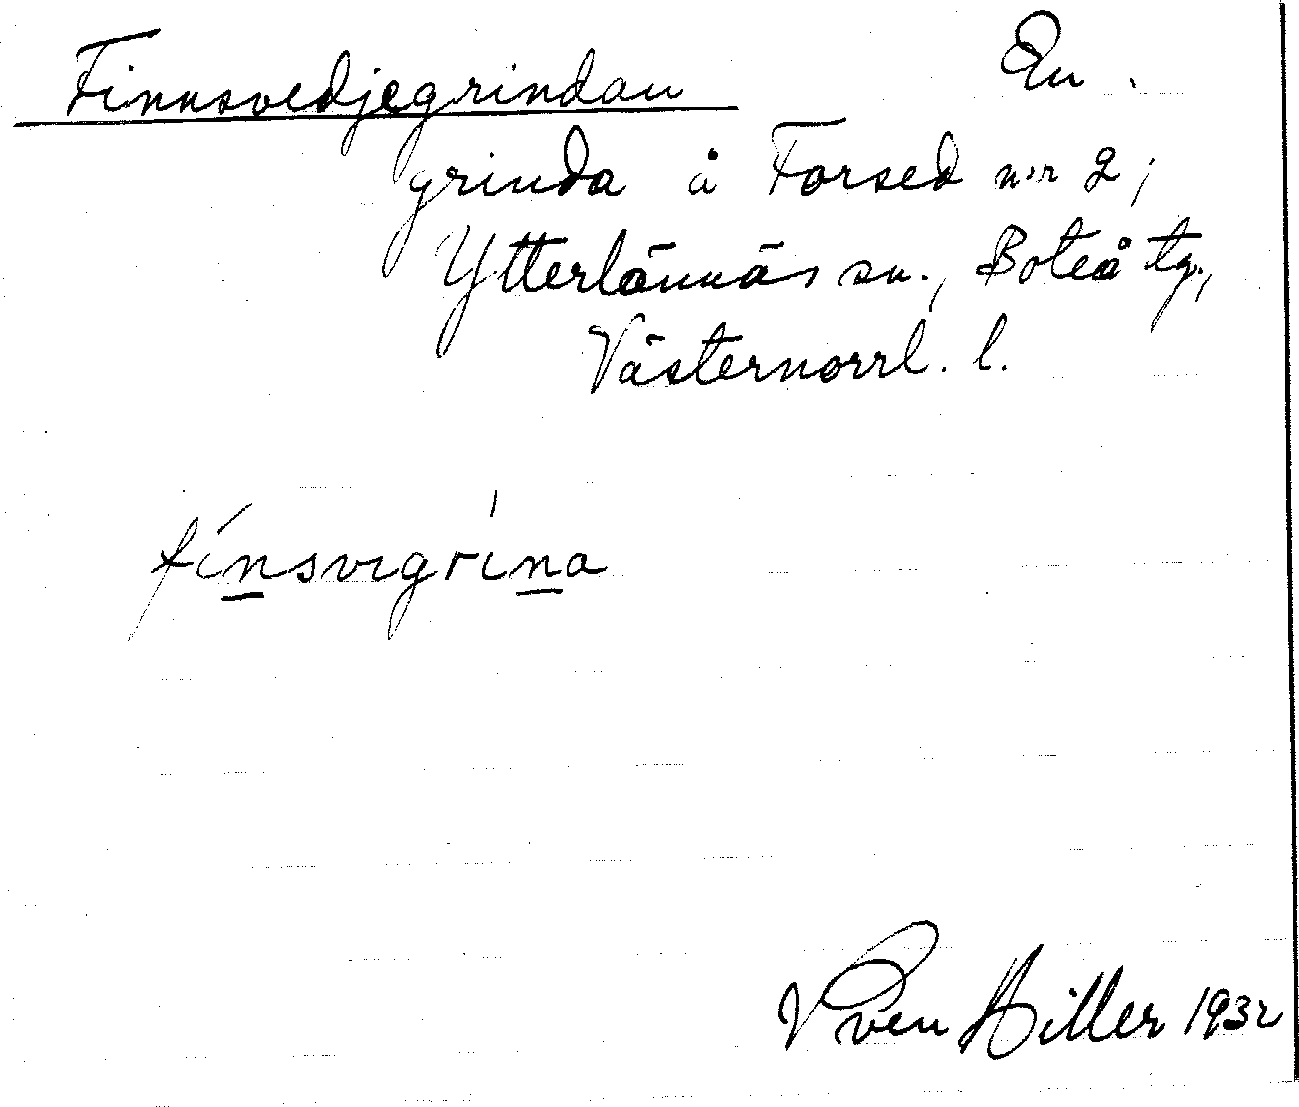 Finnsvedjegrindan En
grinda å Forsed n:r 2,
Ytterlännäs sn., Boteå tg.,
Västernorrl. l.
fínsvıgrína
Sven Hiller 1932